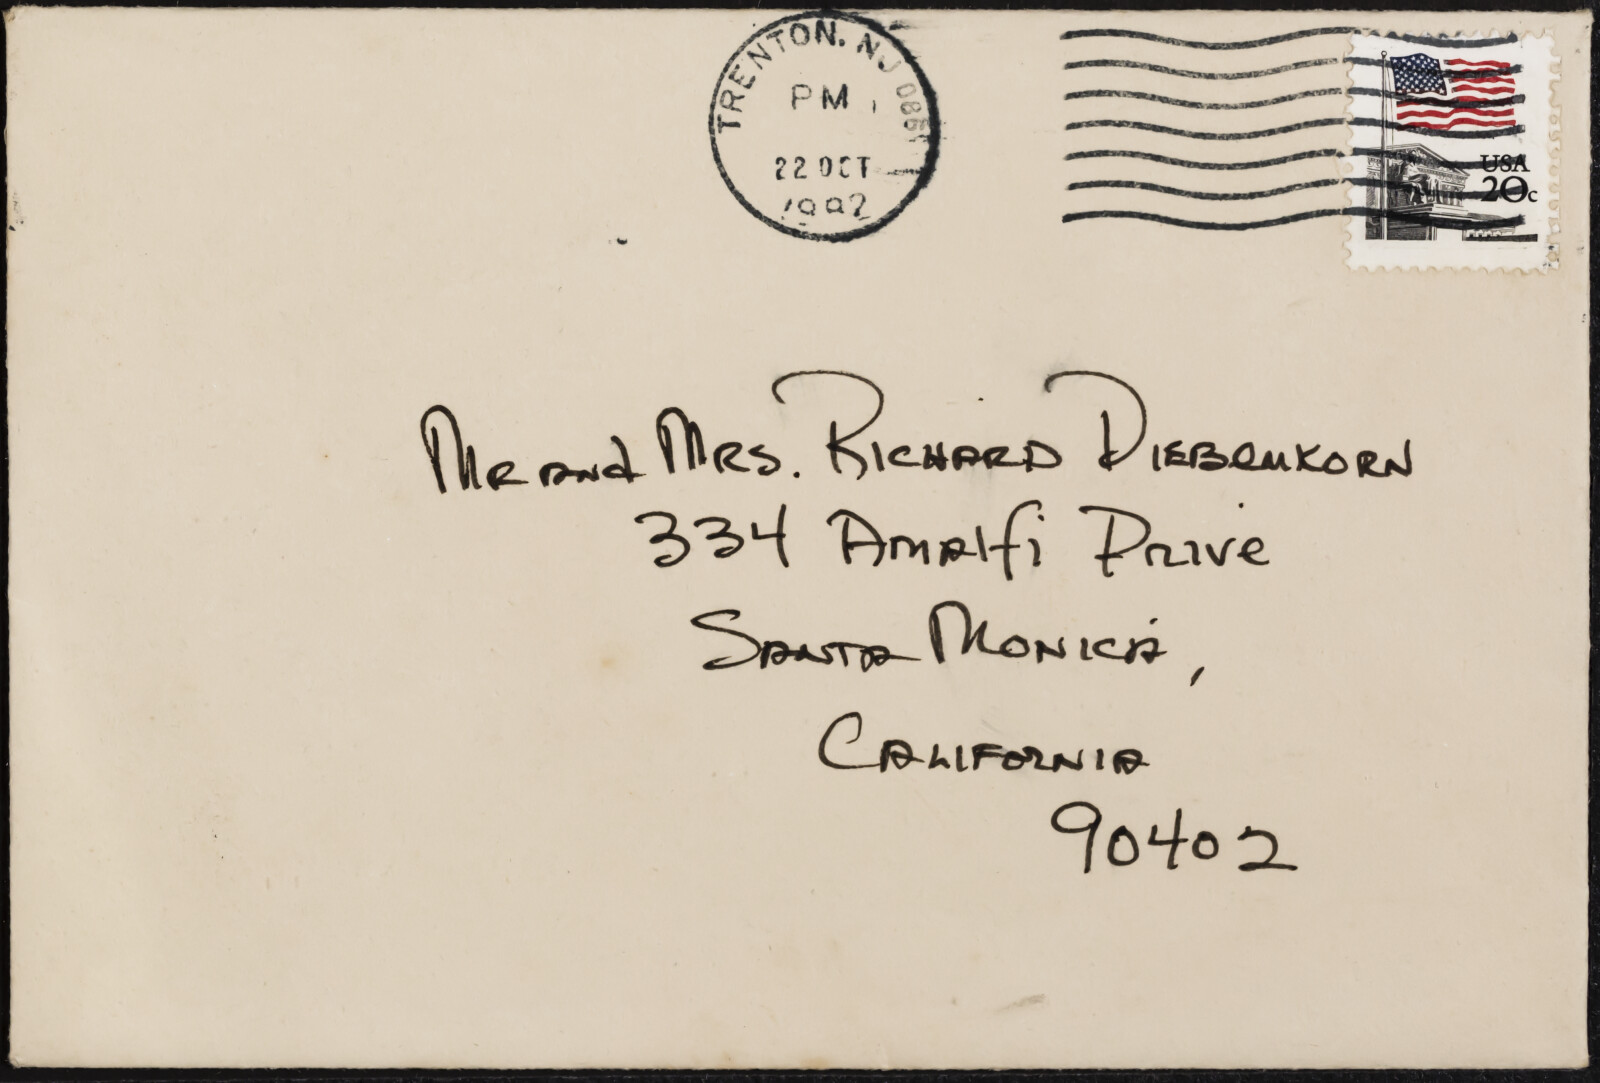 TRENTON, NJ
PM
22 OCT
USA
20c
Mr and Mrs. Richard Diebenkorn
334 Amalfi Drive
Santa Monica,
California
90402